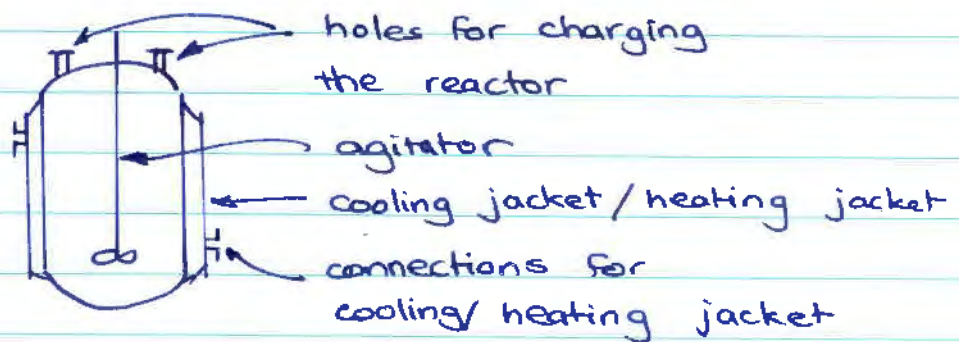 holes for charging
the reactor
agitator
cooling jacket/heating jacket
connections for
cooling/ heating jacket